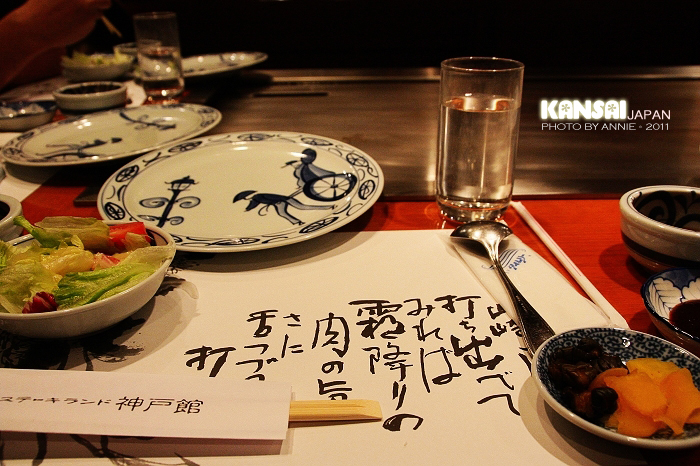 KANSAI JAPAN
PHOTO BY ANNIE • 2011
打ち出でて
みれば
霜降りの
肉の旨
さに
舌つづ
打
ステーキランド 神戸館